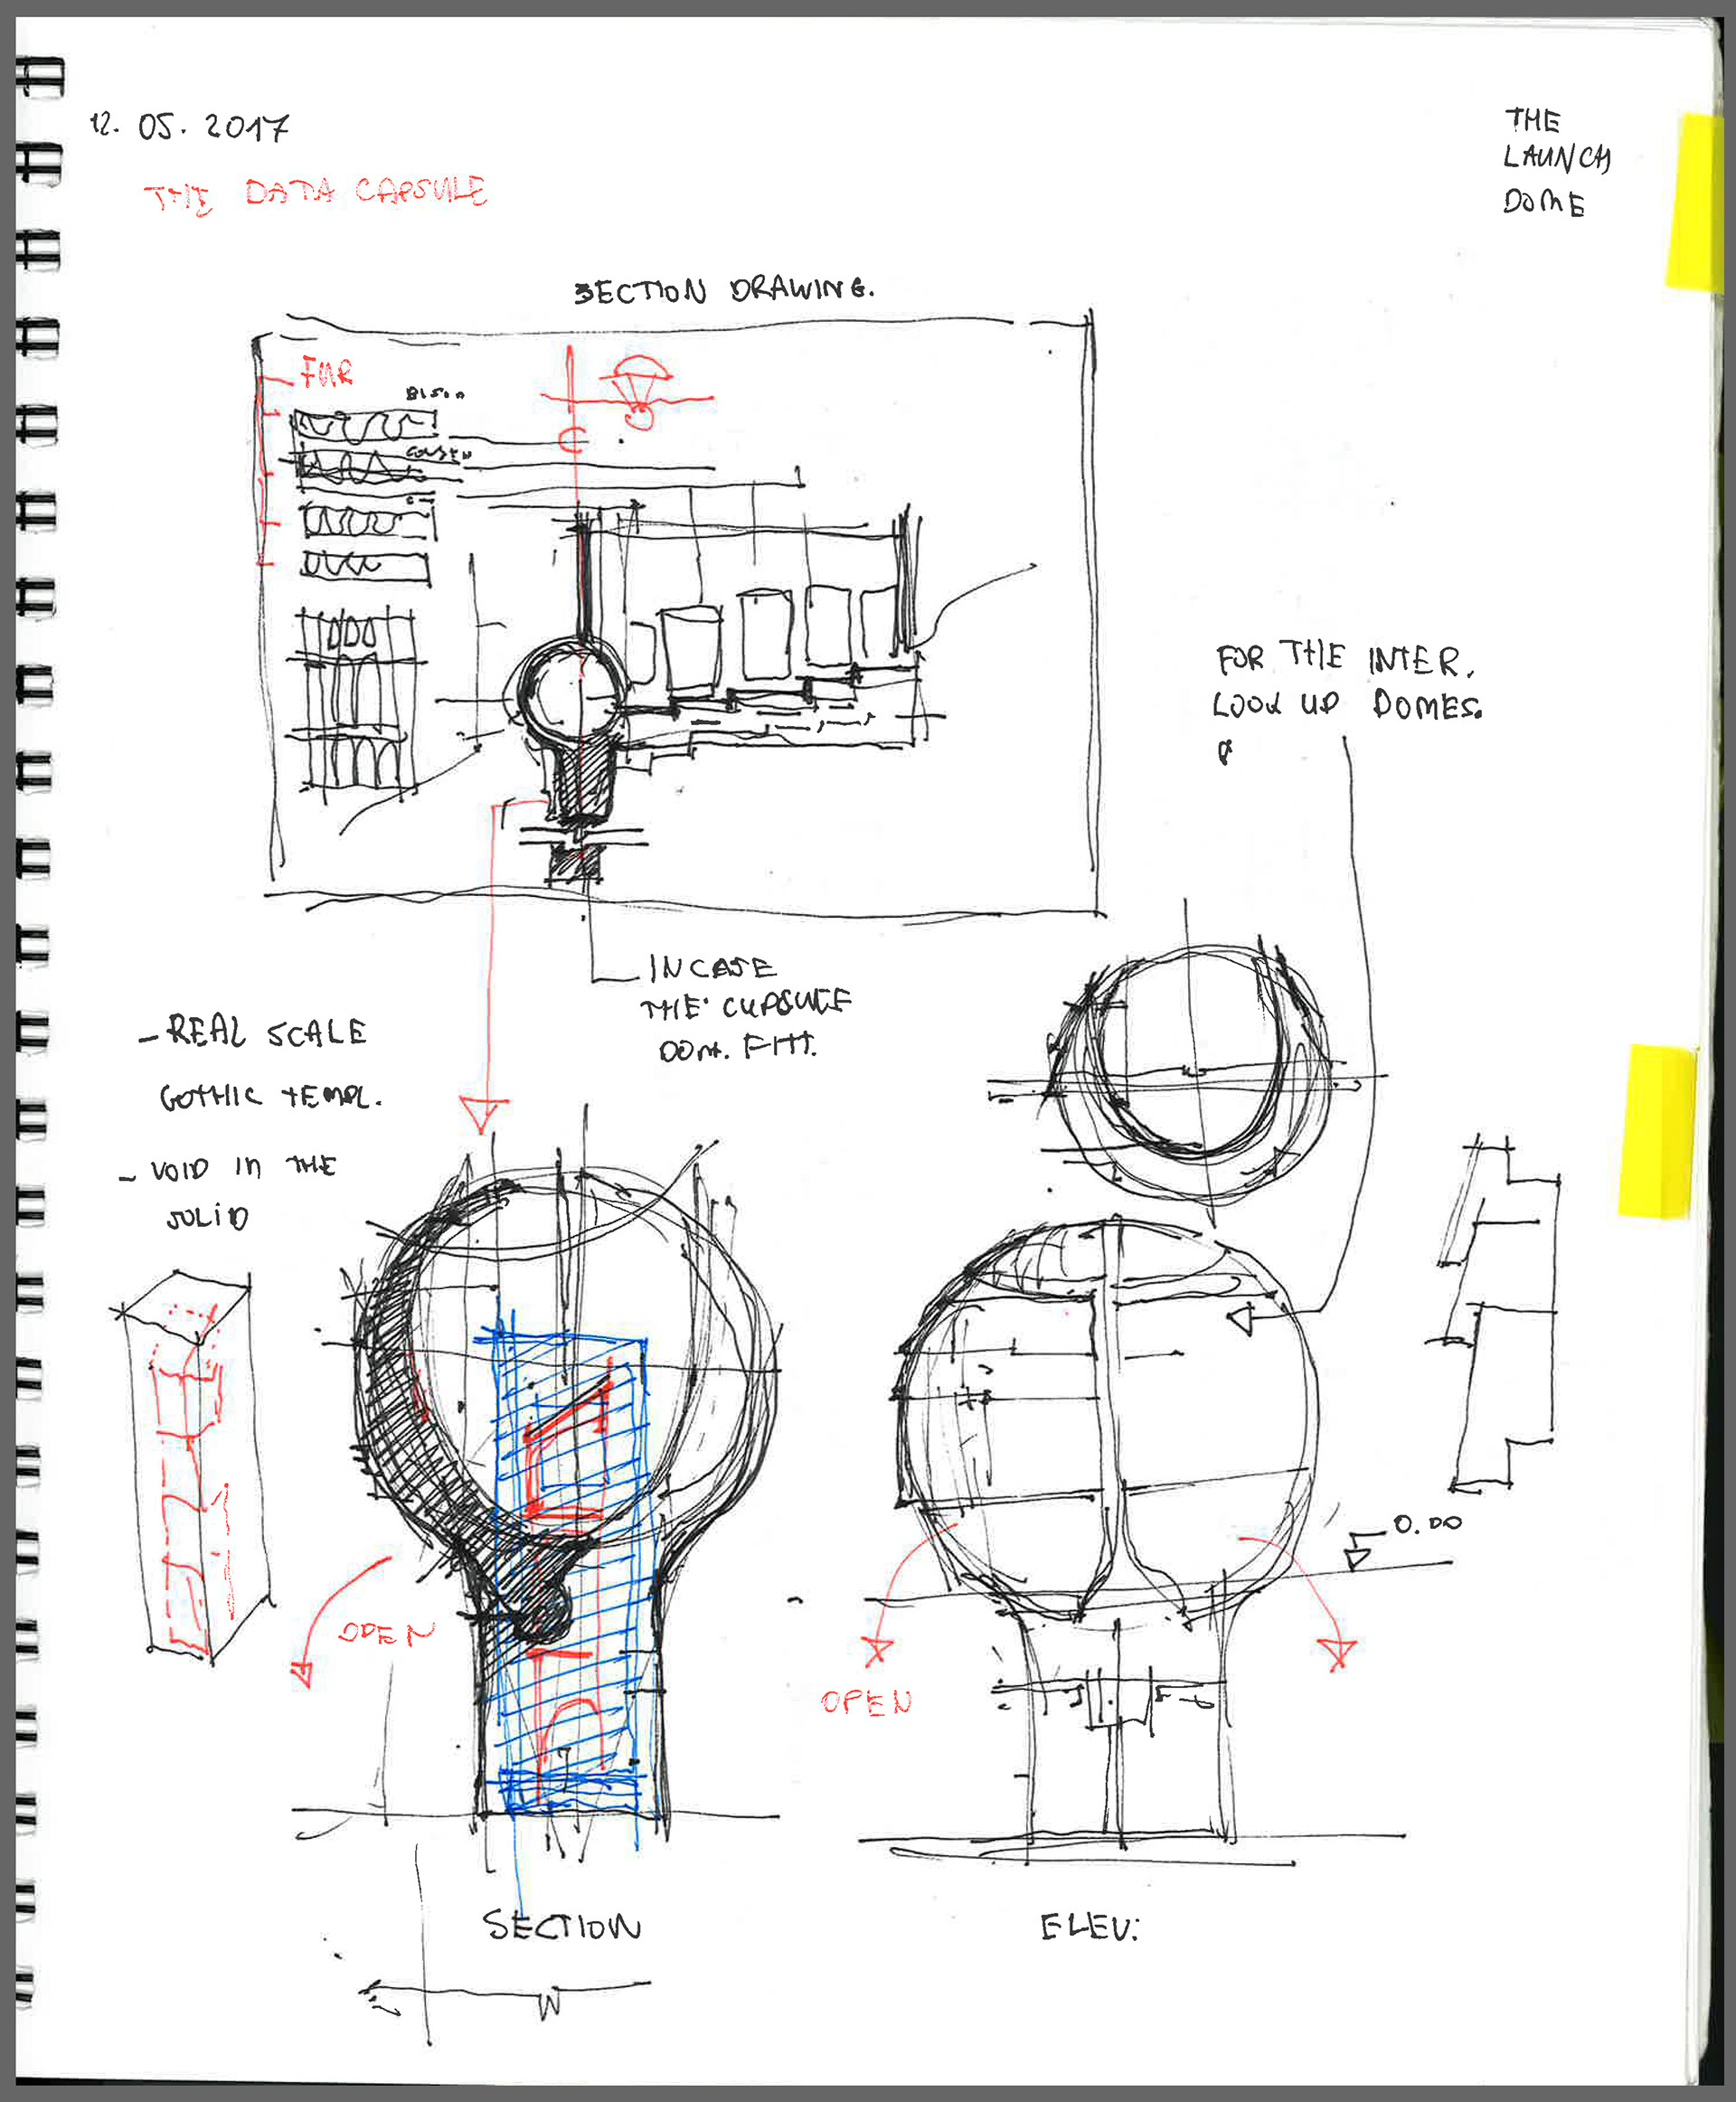 12. 05. 2017
THE DATA CAPSULE
THE
LAUNCH
DOME
SECTION DRAWING.
BISON
FOR THE INTER.
LOOK UP DOMES.
INCASE
THE CUPSULE
DON. FITT.
- REAL SCALE
GOTHIC TEMPL.
- VOID IN THE
SOLID
0.00
OPEN
OPEN
SECTION
ELEV: